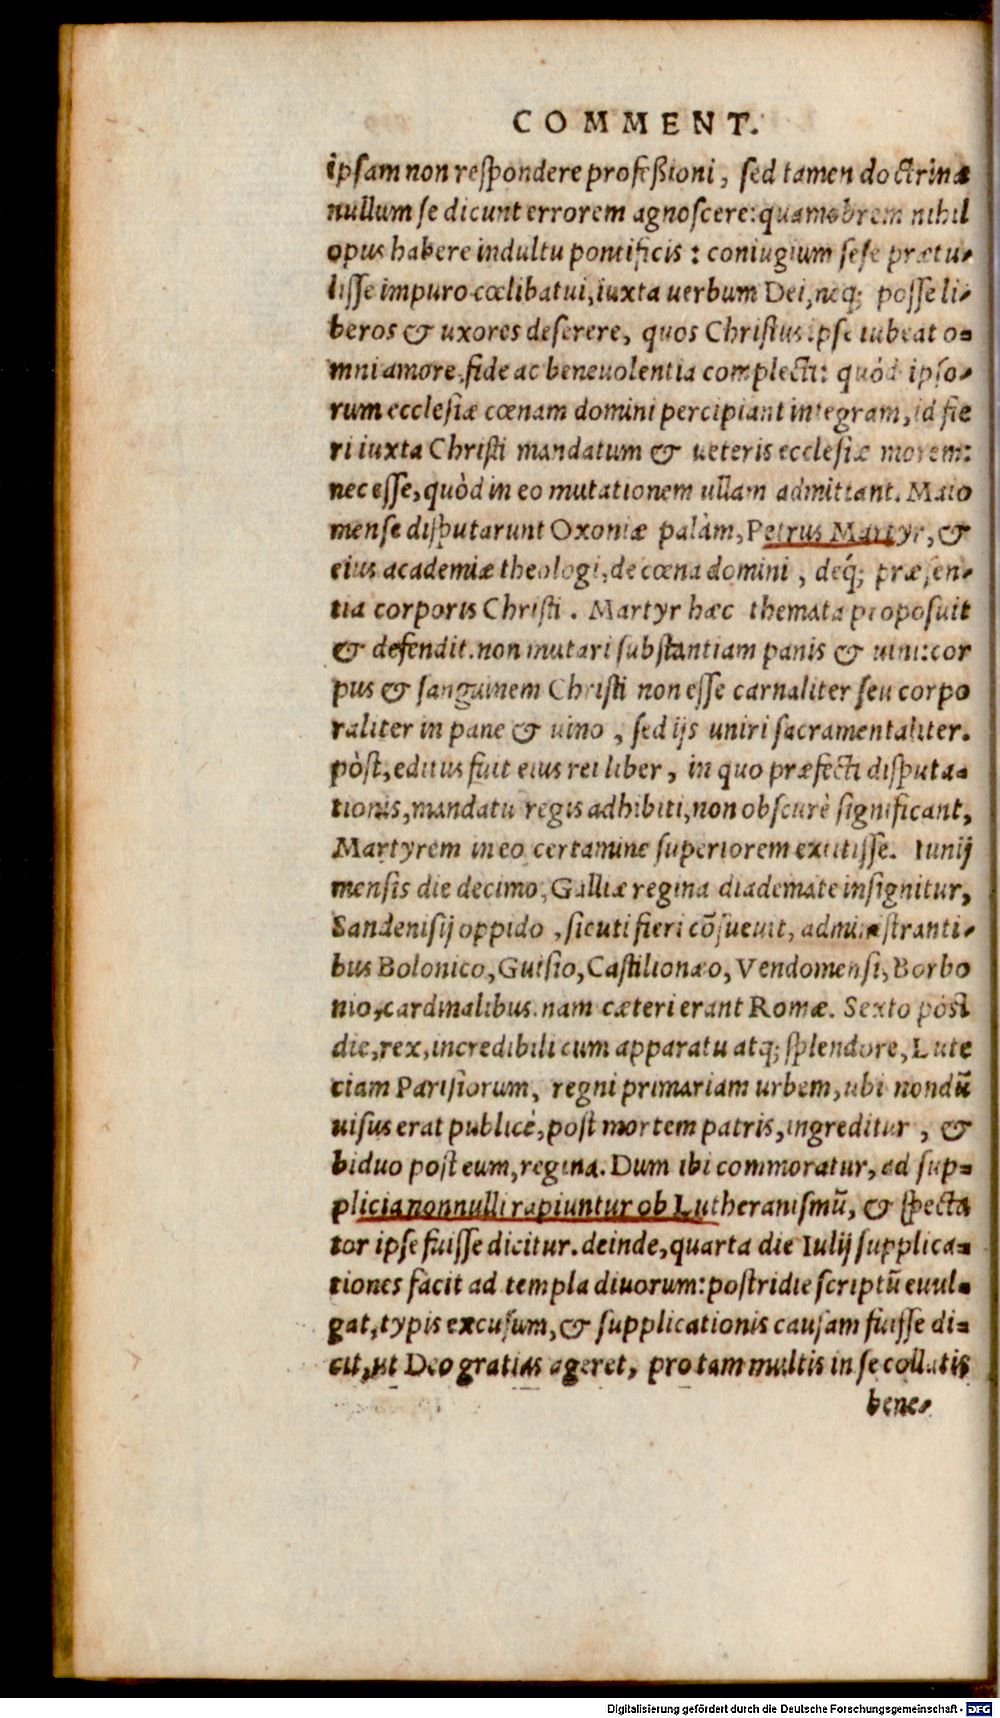 COMMENT.
ipsam non respondere profeßioni, sed tamen doctrinæ
nullum se dicunt errorem agnoscere: quamobrem nihil
opus habere indultu pontificis: coniugium sese prætu-
lisse impuro cœlibatui, iuxta uerbum Dei, neq; posse li-
beros & uxores deserere, quos Christus ipse iubeat o-
mni amore, fide ac beneuolentia complecti: quòd ipso-
rum ecclesiæ cœnam domini percipiant integram, id fie
ri iuxta Christi mandatum & ueteris ecclesiæ morem:
nec esse, quòd in eo mutationem ullam admittant. Maio
mense disputarunt Oxoniæ palàm, Petrus Martyr, &
eius academiæ theologi, de cœna domini, deq́; præsen-
tia corporis Christi. Martyr hæc themata proposuit
& defendit. non mutari substantiam panis & uini: cor
pus & sanguinem Christi non esse carnaliter seu corpo
raliter in pane & uino, sed ijs uniri sacramentaliter.
pòst, editus fuit eius rei liber, in quo præfecti disputa-
tionis, mandatu regis adhibiti, non obscurè significant,
Martyrem in eo certamine superiorem extitisse. Iunij
mensis die decimo, Galliæ regina diademate insignitur,
Sandenisij oppido, sicuti fieri cõsueuit, administranti-
bus Bolonico, Guisio, Castilionæo, Vendomensi, Borbo
nio, cardinalibus. nam cæteri erant Romæ. Sexto pòst
die, rex, incredibili cum apparatu atq; splendore, Lute
ciam Parisiorum, regni primariam urbem, ubi nondũ
uisus erat publicè, post mortem patris, ingreditur, &
biduo post eum, regina. Dum ibi commoratur, ad sup-
plicia nonnulli rapiuntur ob Lutheranismũ, & specta
tor ipse fuisse dicitur. deinde, quarta die Iulij supplica-
tiones facit ad templa diuorum: postridie scriptũ euul-
gat, typis excusum, & supplicationis causam fuisse di-
cit, ut Deo gratias ageret, pro tam multis in se collatis
bene-
Digitalisierung gefördert durch die Deutsche Forschungsgemeinschaft - DFG